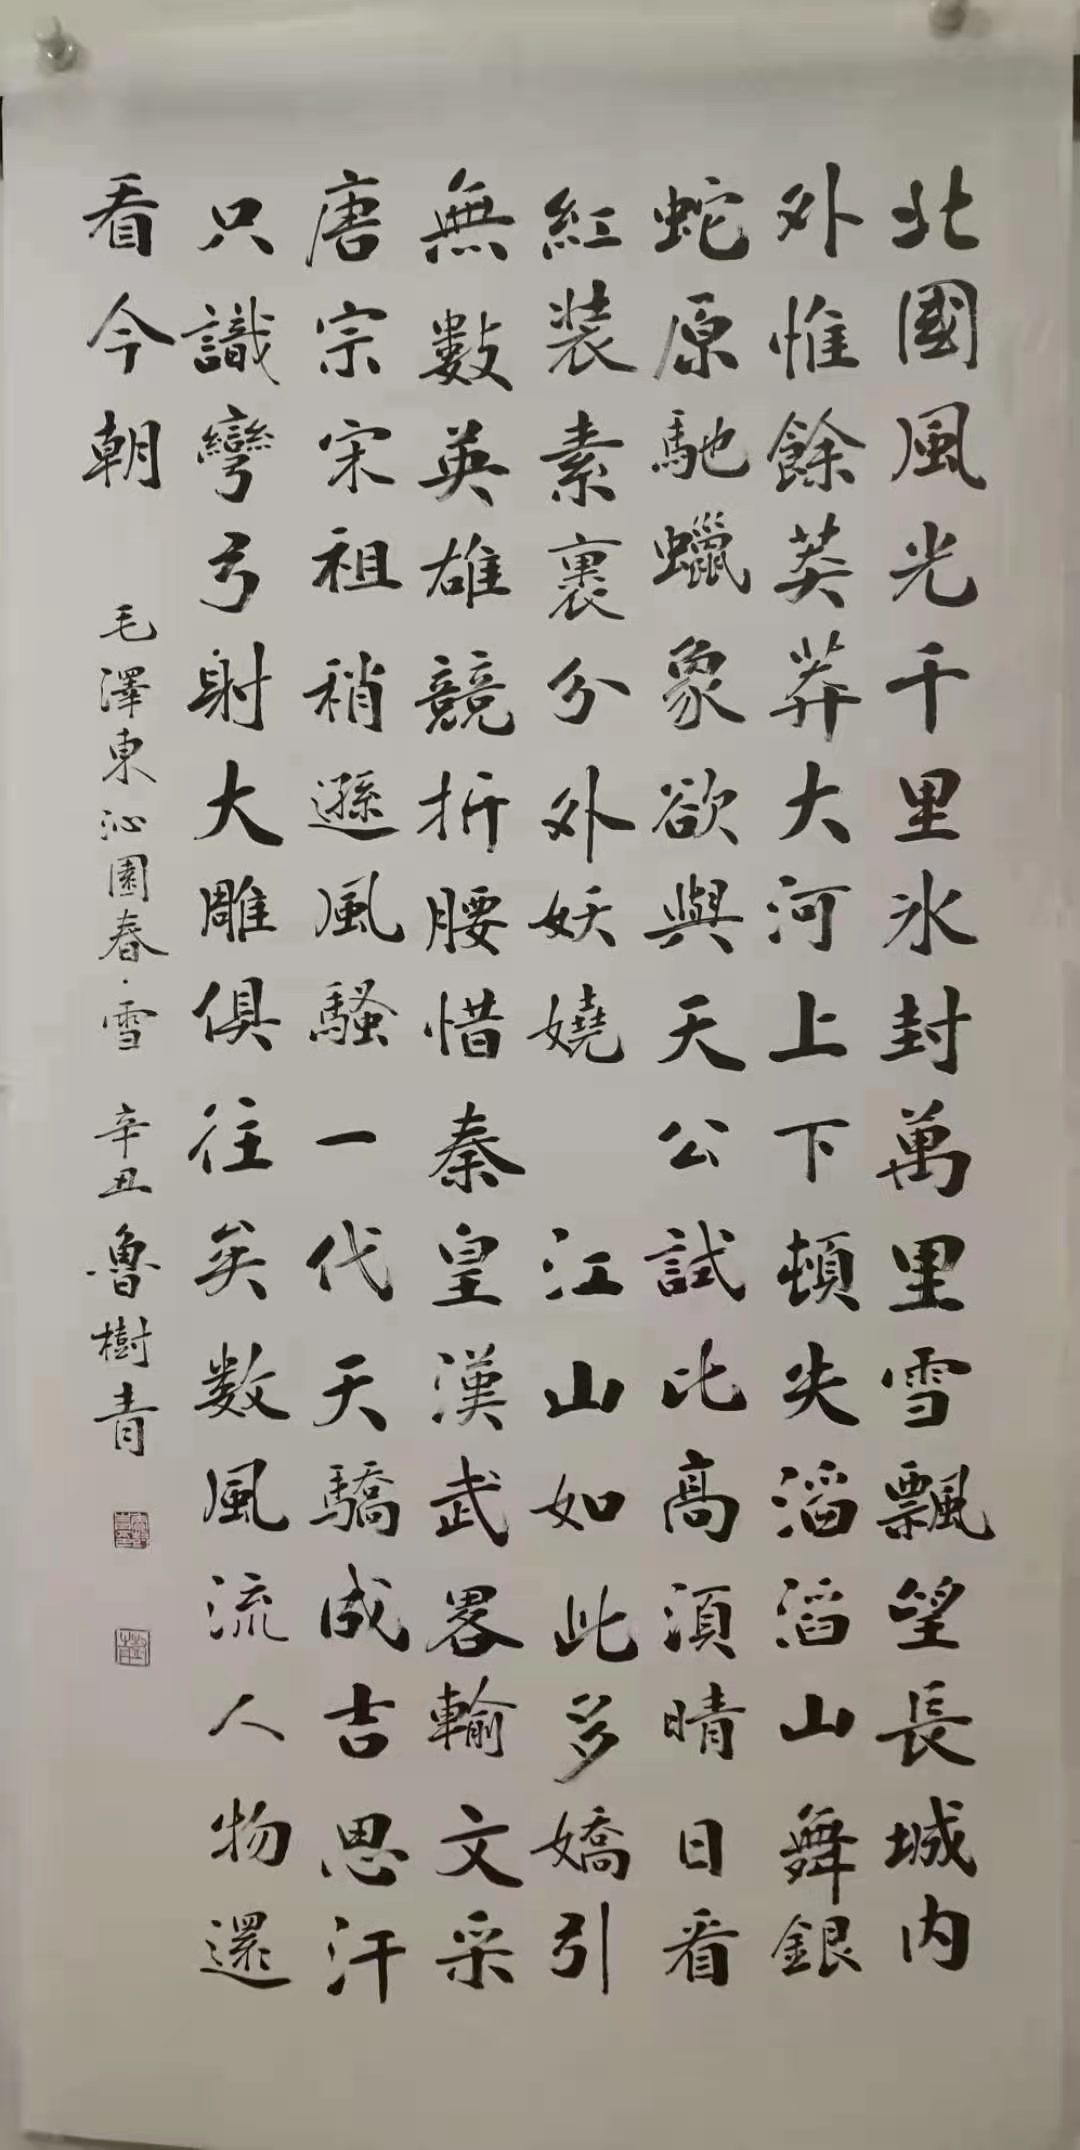 北國風光千里氷封萬里雪飄望長城内
外惟餘莽莽大河上下頓失滔滔山舞銀
蛇原馳蠟象欲與天公試比高須晴日看
紅裝素裹分外妖嬈 江山如此多嬌引
無數英雄競折腰惜秦皇漢武畧輸文采
唐宗宋祖稍遜風騷一代天驕成吉思汗
只識彎弓射大雕俱往矣数風流人物還
看今朝
毛澤東沁園春·雪 辛丑魯樹青